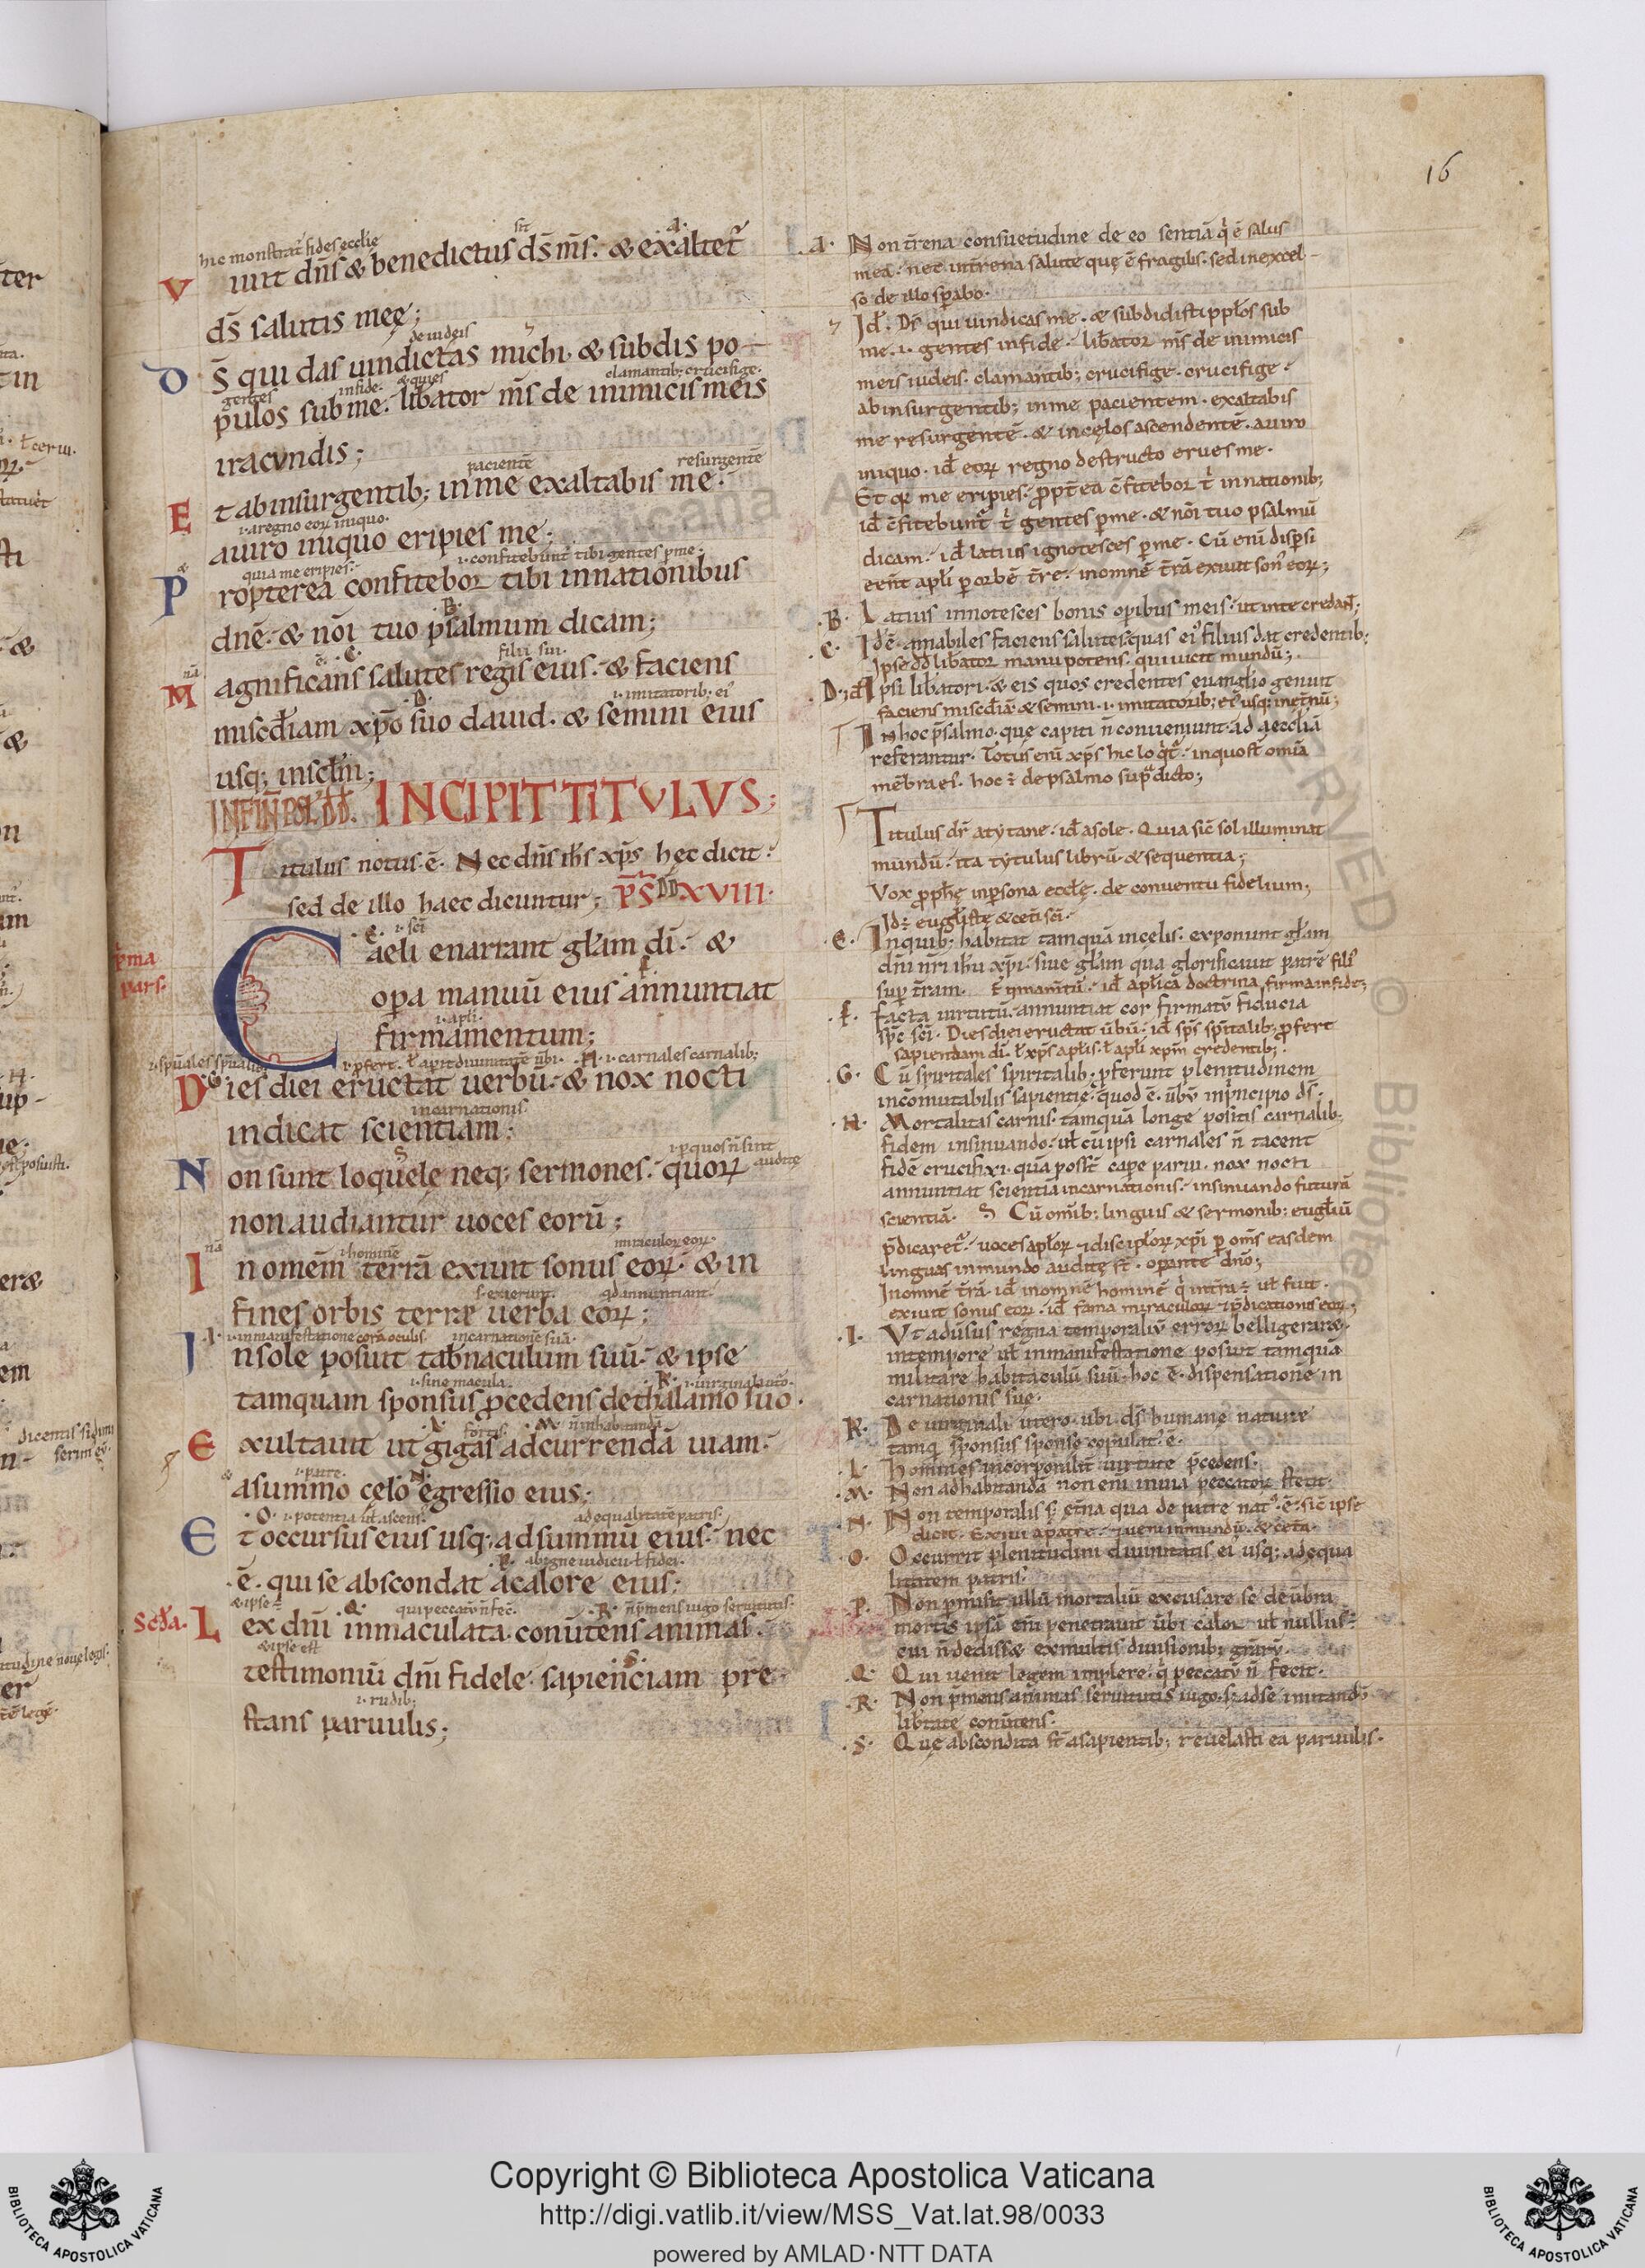 16
hic monstrat fides ecclie
sit
.a.
Viuit dn̄s & benedictus ds̄ m̄s. & exaltet᷑
ds̄ salutis meę;
de iudeis
Ds̄ qui das uindictas michi. & subdis po-
gentes infide. clamantib; crucifige.
pulos sub me. lib̄ator m̄s de inimicis meis
iracundis;
pacientē resurgentē
Et ab insurgentib; in me exaltabis me.
.i. a regno eoꝝ iniquo.
a uiro iniquo eripies me;
quia me eripies. .i. confitebunt tibi gentes p me;
Propterea confitebor tibi in nationibus
.B.
dnē. & nōi tuo psalmum dicam;
.C. filii sui.
Magnificans salutes regis eius. & faciens
.D. .i. imitatorib; ei᷒
misc̄diam xp̄o suo dauid. & semini eius
usq; insclm̄;
INFINĒ PSL' DD. INCIPIT TITULUS;
Titulus notus. ē. Nec dn̄s ih̄s xp̄s hec dicit.
sed de illo haec dicuntur; PS̄ DD XVIII.
p̄ma
pars.
.E. .i. sc̄i
Caeli enarrant gl̄am dī. &
.f.
opa manuū eius annuntiat
.i. apl̄i.
firmamentum;
.i. carnales carnalib;
.G. .H.
Dies diei eructat uerbū. & nox nocti
incarnationis
indicat scientiam;
.i. p quos n̄ sint
Non sunt loquelę neq; sermones. quoꝝ audite
non audiantur uoces eorū;
.i. hominē miraculoꝝ eoꝝ.
In omēm terrā exiuit sonus eoꝝ. & in
s. exierunt. qd annuntiant.
fines orbis terræ uerba eoꝝ;
.I. .i. in manifestatione corā oculis. incarnationē suā.
In sole posuit tab̄naculum suū. & ipse
.i. sine macula. .K. .i. uirginali utō.
tamquam sponsus pcedens de thalamo suo.
.L. fortis. .M. n̄ inhabitandā
Exultauit ut gigas ad currendā uiam.
.i. patre. .N.
a summo cęlo egressio eius;
.O. .i. potentia ut ascens. ad equalitatē patris.
Et occursus eius usq; ad summū eius. nec
.P. ab igne iudicii t fidei.
.ē. qui se abscondat a calore eius;
& ipse ē .Q. qui peccatū n̄ fec̄. .R. n̄ p̄mens iugo seruitutis.
Scd̄a. Lex dn̄i inmaculata. conūtens animas.
& ipse est .S.
testimoniū dn̄i fidele. sapienciam pre-
.i. rudib;
stans paruulis;
.a. Non t̄rena consuetudine de eo sentiā q̇ ē salus
mea. nec in t̄rena salute quę ē fragilis. sed in excel-
so de illo sp̄abo.
Id̄. Ds̄ qui uindicas me. & subdidisti pplōs sub
me. .i. gentes infide. lib̄ator m̄s de inimicis
meis iudeis. clamantib; crucifige. crucifige.
ab insurgentib; in me pacientem. exaltabis
me resurgentē. & in cęlos ascendentē. a uiro
iniquo. id̄ eoꝝ regno destructo erues me.
Et q̇ me eripies. ppt̄ea c̄fitebor t̄ in nationib;
id̄ c̄fitebunt᷑ t̄ gentes p me. & nōi tuo psalmū
dicam. id̄ latius ignotesces p me. Cū enī dispsi
eēnt apl̄i p orbē t̄re. in omnē t̄rā exiuit son᷒ eoꝝ;
.B. Latius innotesces bonis opibus meis. ut in te credant;
.C. Idē. amabiles faciens salutes quas ei᷒ filius dat credentib;
Ipse dd̄ lib̄ator manu potens. qui uicit mundū;
.D. id̄ Ipsi lib̄atori. & eis quos credentes euanglio genuit
faciens misc̄diā. & semini .i. imitatorib; ei᷒ usq; in et̄nū;
In hoc psalmo. quę capiti n̄ conueniunt. ad aeccliā
referantur. Totus enī xp̄s hic loq̇t᷑. in quo st̄ omīa
mēbra ei᷒. hoc ē de psalmo sup̄dicto;
Titulus dr̄ a tytane. id̄ a sole. Quia sic̄ sol illuminat
mundū. ita tytulus librū. & sequentia;
Vox pph̄ę in psona ecclę. de conuentu fidelium;
Id ē eugl̄istę & cet̄i sc̄i.
.E. In quib; habitat tamquā in cęlis. exponunt gl̄am
dn̄i nr̄i ih̄u xp̄i. siue gl̄am qua glorificauit patrē fili᷒
sup t̄ram. firmam̄tū. id̄ apl̄ica doctrina firma in fide;
.f. facta uirtutū. annuntiat cor firmatū fiducia
sp̄c sc̄i. Dies diei eructat ūbū. id̄ sp̄s sp̄italib; pfert
sapiendam dī. t xp̄s apl̄is. t apl̄i xp̄m credentib;
.G. Cū spiritales spiritalib; pferunt plenitudinem
incōmutabilis sapientię. quod ē. ūbū in ṗncipio ds̄.
.H. Mortalitatis carnis. tamquā longe positis carnalib;
fidem insinuando. ut cū ipsi carnales n̄ tacent
fidē crucifixi. nox nocti
annuntiat scientiā incarnationis. insinuando futurā
scientiā. Cū omīb; linguis & sermonib; eugl̄iū
p̄dicaret᷑. uoces aploꝝ discipl̄oꝝ xp̄i p oms̄ easdem
linguas in mundo audite st̄. opante dn̄o;
In omnē t̄rā. id̄ in omnē hominē q̇ in t̄ra ē ut fuit.
exiuit sonus eoꝝ. id̄ fama miraculoꝝ & p̄dicationis eoꝝ;
.I. Vt adūsus regna temporaliū erroꝝ belligeraræ.
in tempore ut in manifestatione posuit tamquā
militare habitaculū suū. hoc ē. dispensationē in
carnationis suę.
.K. De uirginali utero. ubi ds̄ humane nature
tamq̄ sponsus sponse copulat᷒ ē.
.L. Homines incorporabilit̄ uirtute p̄cedens.
.M. Non ad habitandā. non enī in uia peccatoꝝ stetit.
.N. Non temporalis s; et̄na qua de patre nat᷒. ē. sic̄ ipse
dicit. Exiui a patre. & ueni in mundū. & cet̄a.
.O. Occurrit plenitudini diuinitatis ei usq; ad equa
litatem patris.
.P. Non pmisit ullū mortaliū excusare se de ūbra
mortis. ipsā enī penetrauit ūbi calor. ut nullus ē
cui n̄ dedisset ex multis diuisionib;
.Q. Qui uenit legem implere. q̇ peccatū n̄ fecit.
.R. Non p̄mens animas seruitutis iugo. s; ad se imitandū
lib̄tate conūtens.
.S. Quę abscondita st̄ a sapientib; reuelasti ea paruulis.
Copyright © Biblioteca Apostolica Vaticana
http://digi.vatlib.it/view/MSS_Vat.lat.98/0033
powered by AMLAD·NTT DATA
BIBLIOTECA APOSTOLICA VATICANA
BIBLIOTECA APOSTOLICA VATICANA